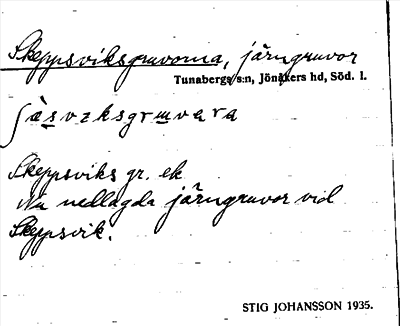 Skeppsviksgruvorna, järngruvor
Tunabergs s:n, Jönåkers hd, Söd. l.
Skeppsviks gr. ek
Nu nedlagda järngruvor vid
Skeppsvik.
STIG JOHANSSON 1935.